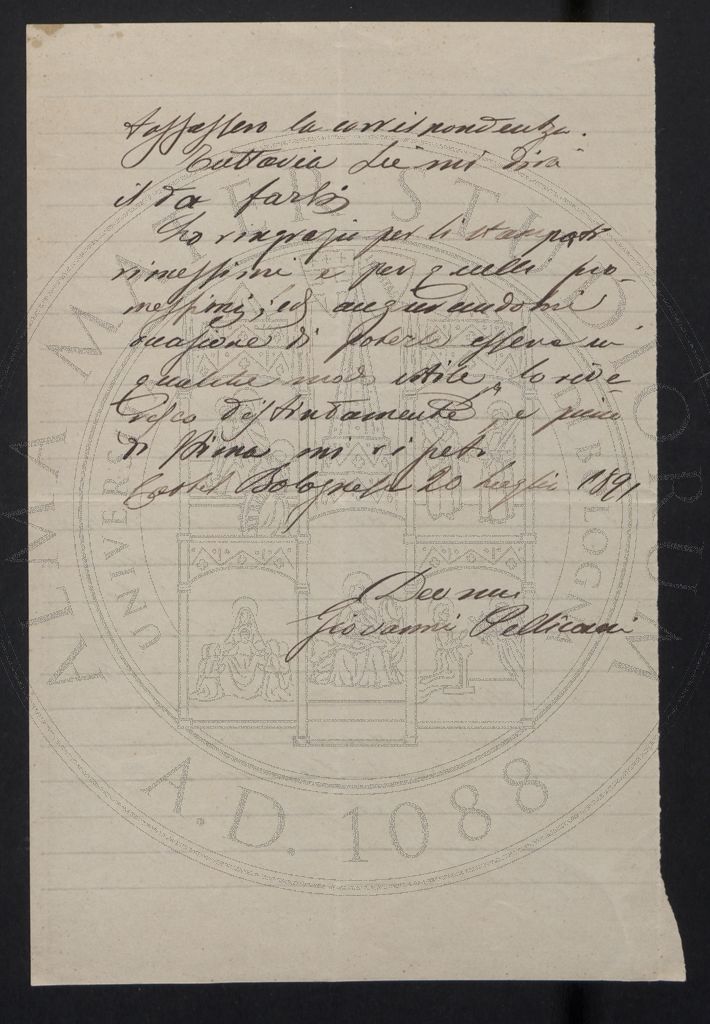 tassassero la corrispondenza.
Tuttavia Lei mi dirà
il da farsi
La ringrazio per li stampati
rimessimi e per quelli pro-
messimi; ed augurandomi
occasione di poterle essere in
qualche modo utile, la rive
risco distintamente, e pieno
di stima mi ripeto
Castel Bolognese 20 Luglio 1891
Dev mo
Giovanni Pellicani
ALMA MATER STUDIORUM
UNIVERSITÀ BOLOGNA
A.D. 1088